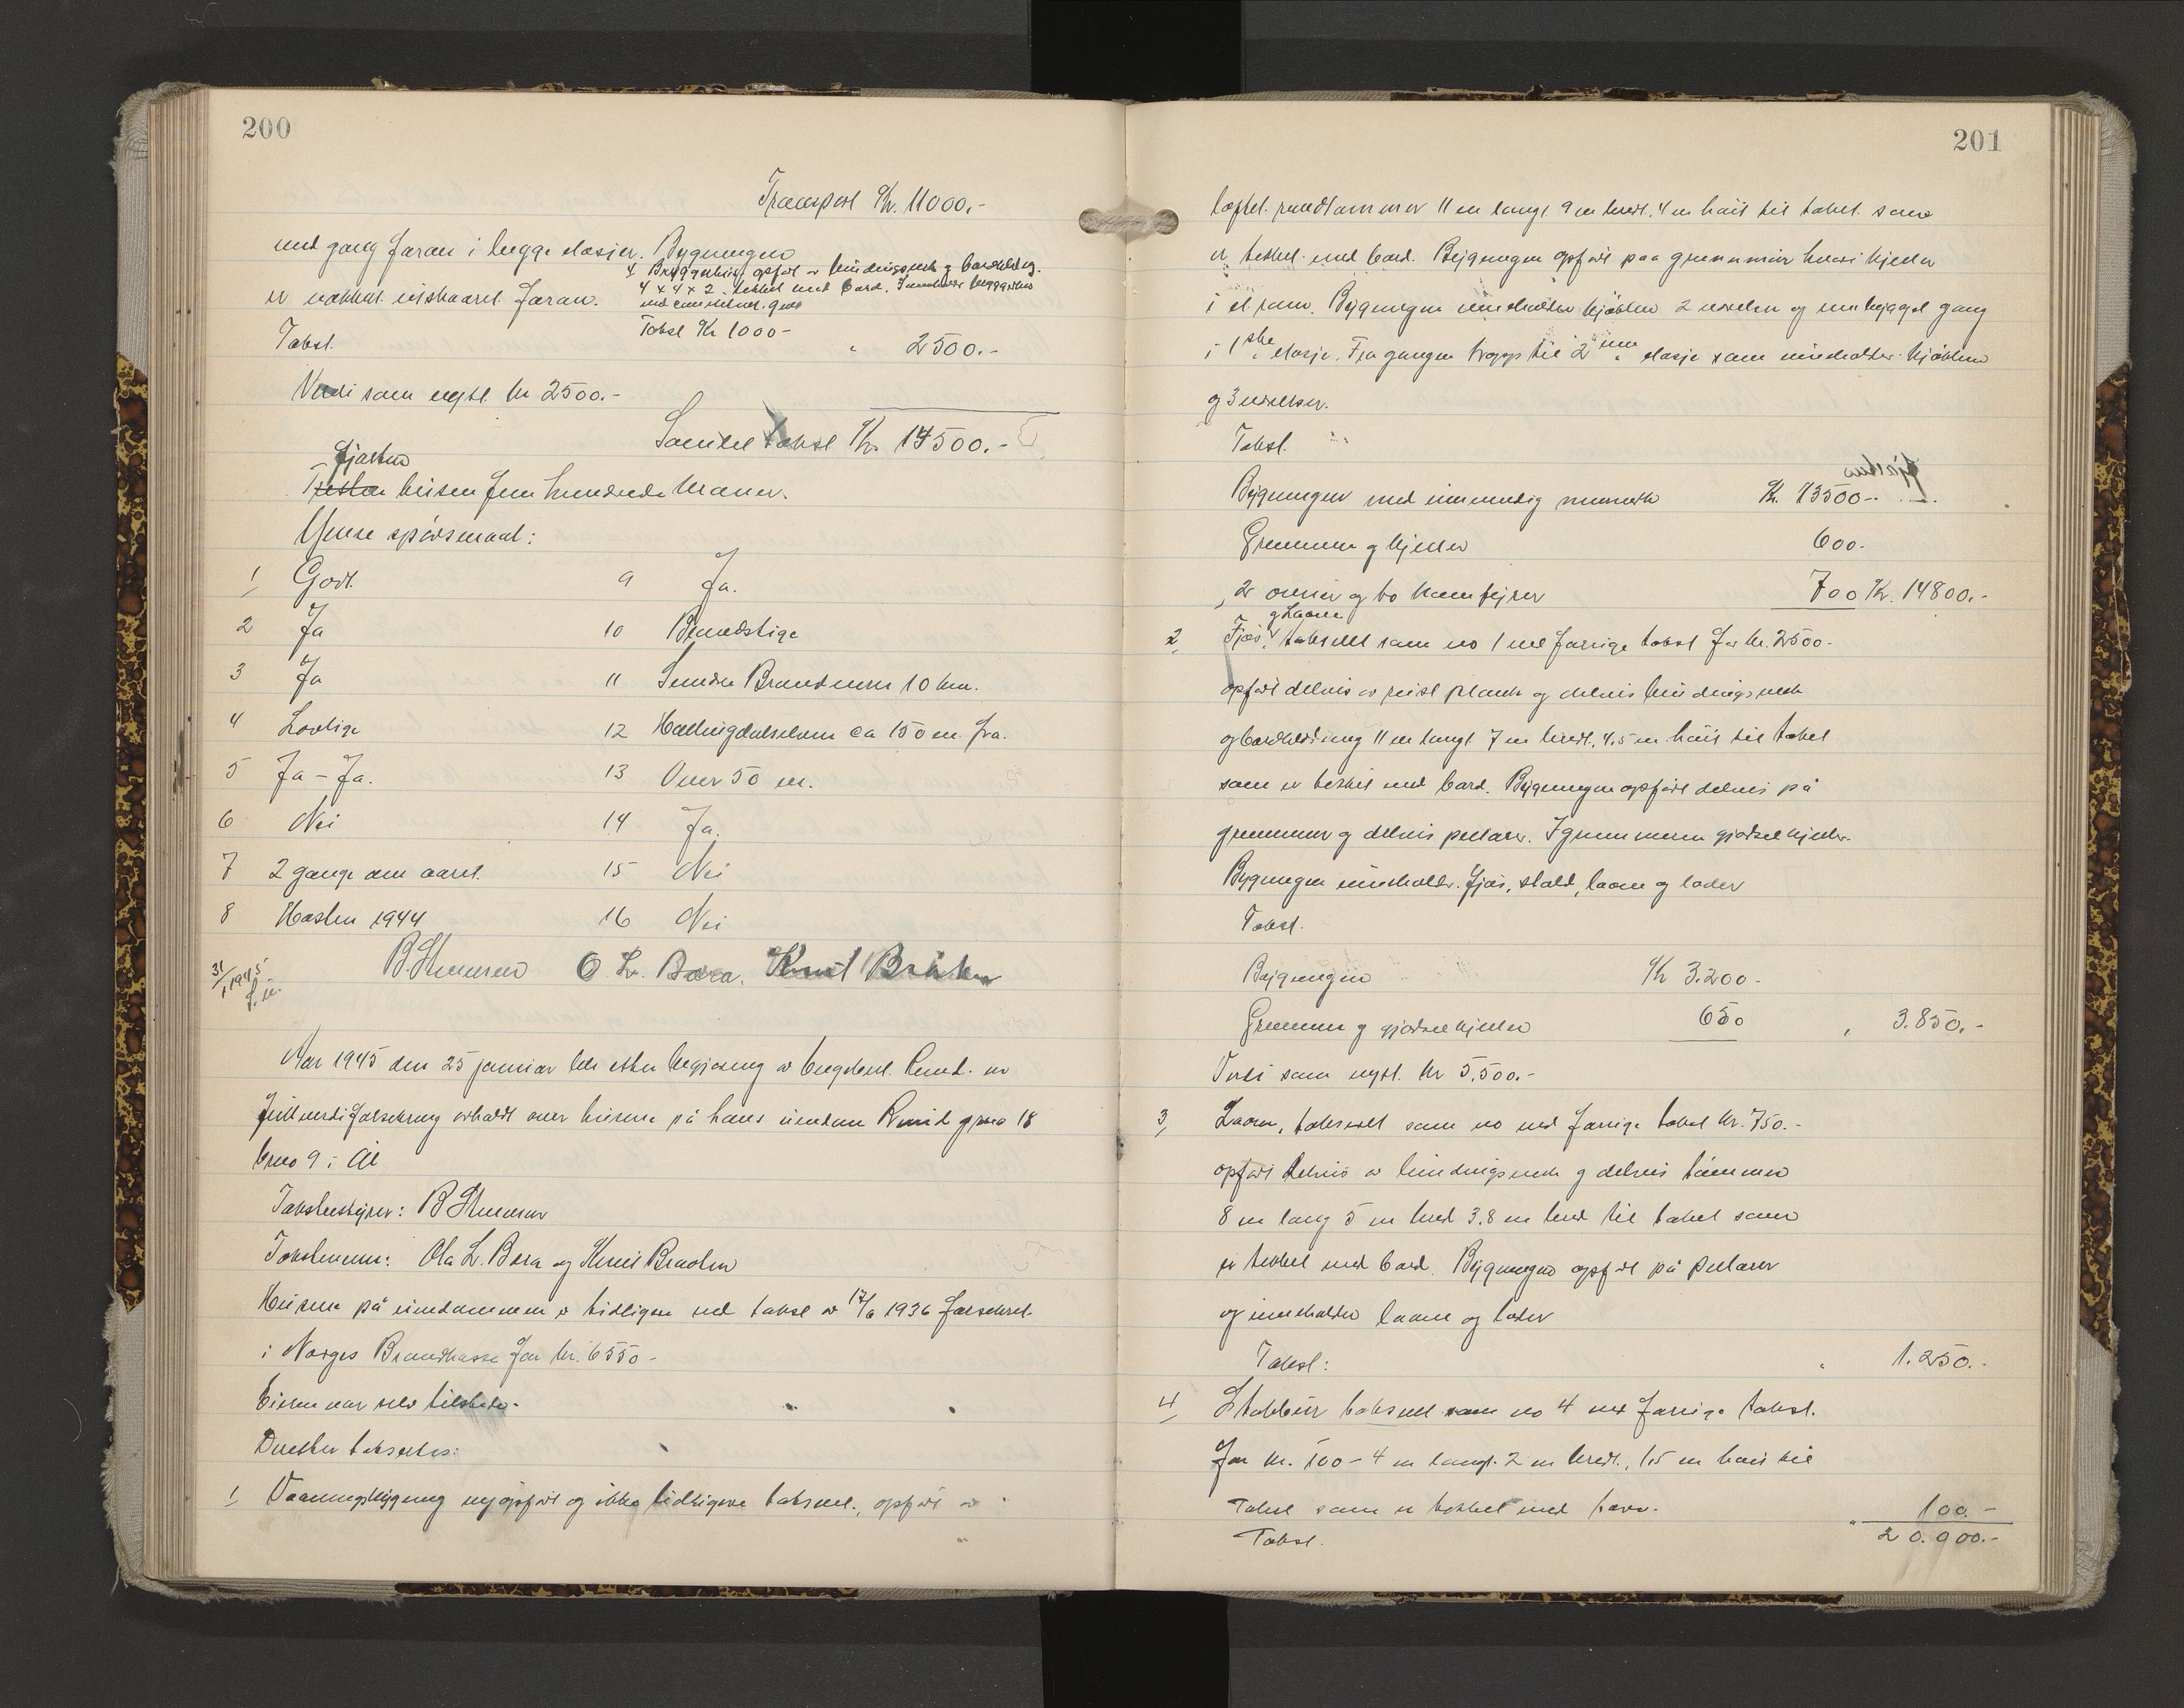 200
Transport Kr. 11000.-
med gang foran i begge etasjer. Bygningen
4 Bryggerhus opført av bindingsverk og bordkledning.
4 x 4 x 2 tekket med bord. Inneholder bryggerhus
er vakkert utskaaret foran.
Takst Kr 1000-
Takst. " 2500.-
Verdi som nytt kr 2500.-
Samlet takst Kr. 14500.-
fjorten
Tretten tusen fem hundrede kroner.
Ymse spørsmaal:
1 Godt. 9 Ja.
2 Ja 10 Brandstige
3 Ja 11 Søndre Brandmur 10 km.
4 Lovlige 12 Hallingdalselven ca 150 m. fra.
5 Ja – Ja. 13 Over 50 m.
6 Nei 14 Ja.
7 2 gange om aaret. 15 Nei
8 Høsten 1944 16 Nei
31/1 1945
B Thunesen O. L. Børa. Knut Bråten
Aar 1945 den 25 januar ble etter begjæring av Engebret Rimd. en
fullverdiforsekring avholdt over husene på hans eiendom gno 18
bno 9 i Ål
Takstbestyrer: B Thunesen
Takstmenn: Ola L. Børa og Knut Braaten
Husene på eiendommen er tidligere ved takst av 17/6 1936 forsekret
i Norges Brandkasse for kr. 6550-
Eieren var selv tilstede.
Deretter taksertes:
1 Vaaningsbygning nyopført og ikke tidligere taksert, opført av
201
laftet rundtømmer 11 m langt 9 m bredt, 4 m høit til taket som
er tekket med bord. Bygningen opført paa grunnmur hvori kjeller
i et rum. Bygningen inneholder kjøkken 2 værelser og innbygget gang
i 1ste etasje. Fra gangen trapp til 2nen etasje som inneholder kjøkken
og 3 værelser.
Takst.
Bygningen med innvendig murverk Kr. 13500-
Grunnmur og kjeller 600.-
2 ovner og to komfyrer 700 Kr. 14800.-
og Laave
2 Fjøs, taksert som no 1 ved forrige takst for kr. 2500-
opført delvis av reist plank og delvis bindingsverk
og bordkledning 11 m langt 7 m bredt, 4,5 m. høit til taket
som er tekket med bord. Bygningen opført delvis på
grunnmur og delvis pillarer. I grunnmuren gjødselkjeller.
Bygningen inneholder fjøs, stald, laave og lader
Takst.
Bygningen Kr 3.200-
Grunnmur og gjødselkjeller 650 " 3.850.-
Verdi som nytt. kr 5.500.-
3 Laave, taksert som no ved forrige takst kr. 750.-
opført delvis av bindingsverk og delvis tømmer
8 m lang 5 m bred 3.8 m til taket som
er tekket med bord. Bygningen opført på pillarer
og inneholder laave og lader
Takst: " 1.250.-
4 Stabbur taksert som no 4 ved forrige takst.
for kr. 100- 4 m langt. 2 m bredt, 1,5 m høit til
taket som er tekket med torv.
Takst. " 100.-
20.000.-